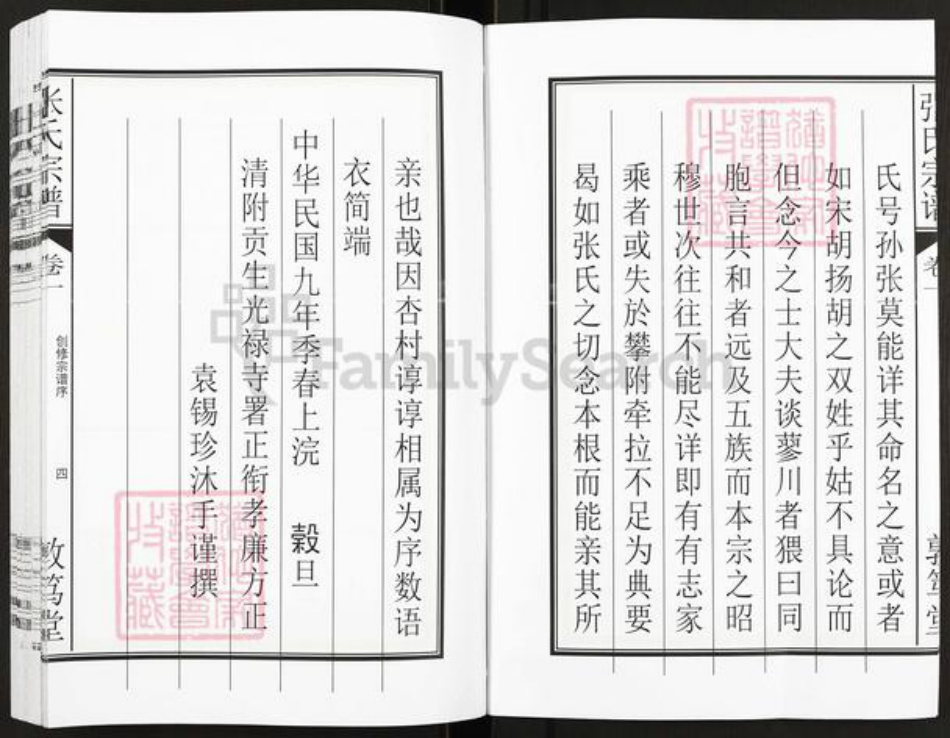 张氏宗谱
卷一
敦笃堂
氏号孙张莫能详其命名之意或者
如宋胡扬胡之双姓乎姑不具论而
但念今之士大夫谈蓼川者猥曰同
胞言共和者远及五族而本宗之昭
穆世次往往不能尽详即有有志家
乘者或失於攀附牵拉不足为典要
曷如张氏之切念本根而能亲其所
亲也哉因杏村谆谆相属为序数语
衣简端
中华民国九年季春上浣 穀旦
清附贡生光禄寺署正衔孝廉方正
袁锡珍沐手谨撰
张氏宗谱
卷一
创修宗谱序
四
敦笃堂
FamilySearch